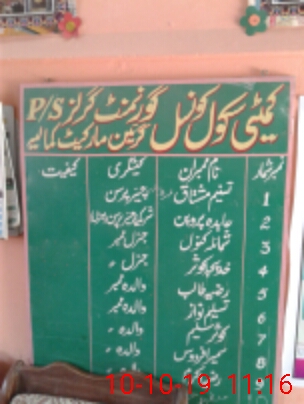 کمیٹی سکول کونسل گورنمنٹ گرلز P/S
گرین مارکیٹ کمالیہ
نمبر شمار نام ممبران کیٹگری کیفیت
1 تسنیم مشتاق چیئر پرسن
2 عابدہ پروین
3 شمائلہ کنول جنرل ممبر
4 خدیجہ کوثر جنرل "
5 رضیہ طالب والدہ ممبر
6 تسلیم نواز والدہ ممبر
7 کوثر سلیم والدہ "
8 سمیرا فردوس والدہ "
10-10-19 11:16